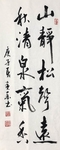 山靜松聲遠
秋清泉氣香
庚子夏